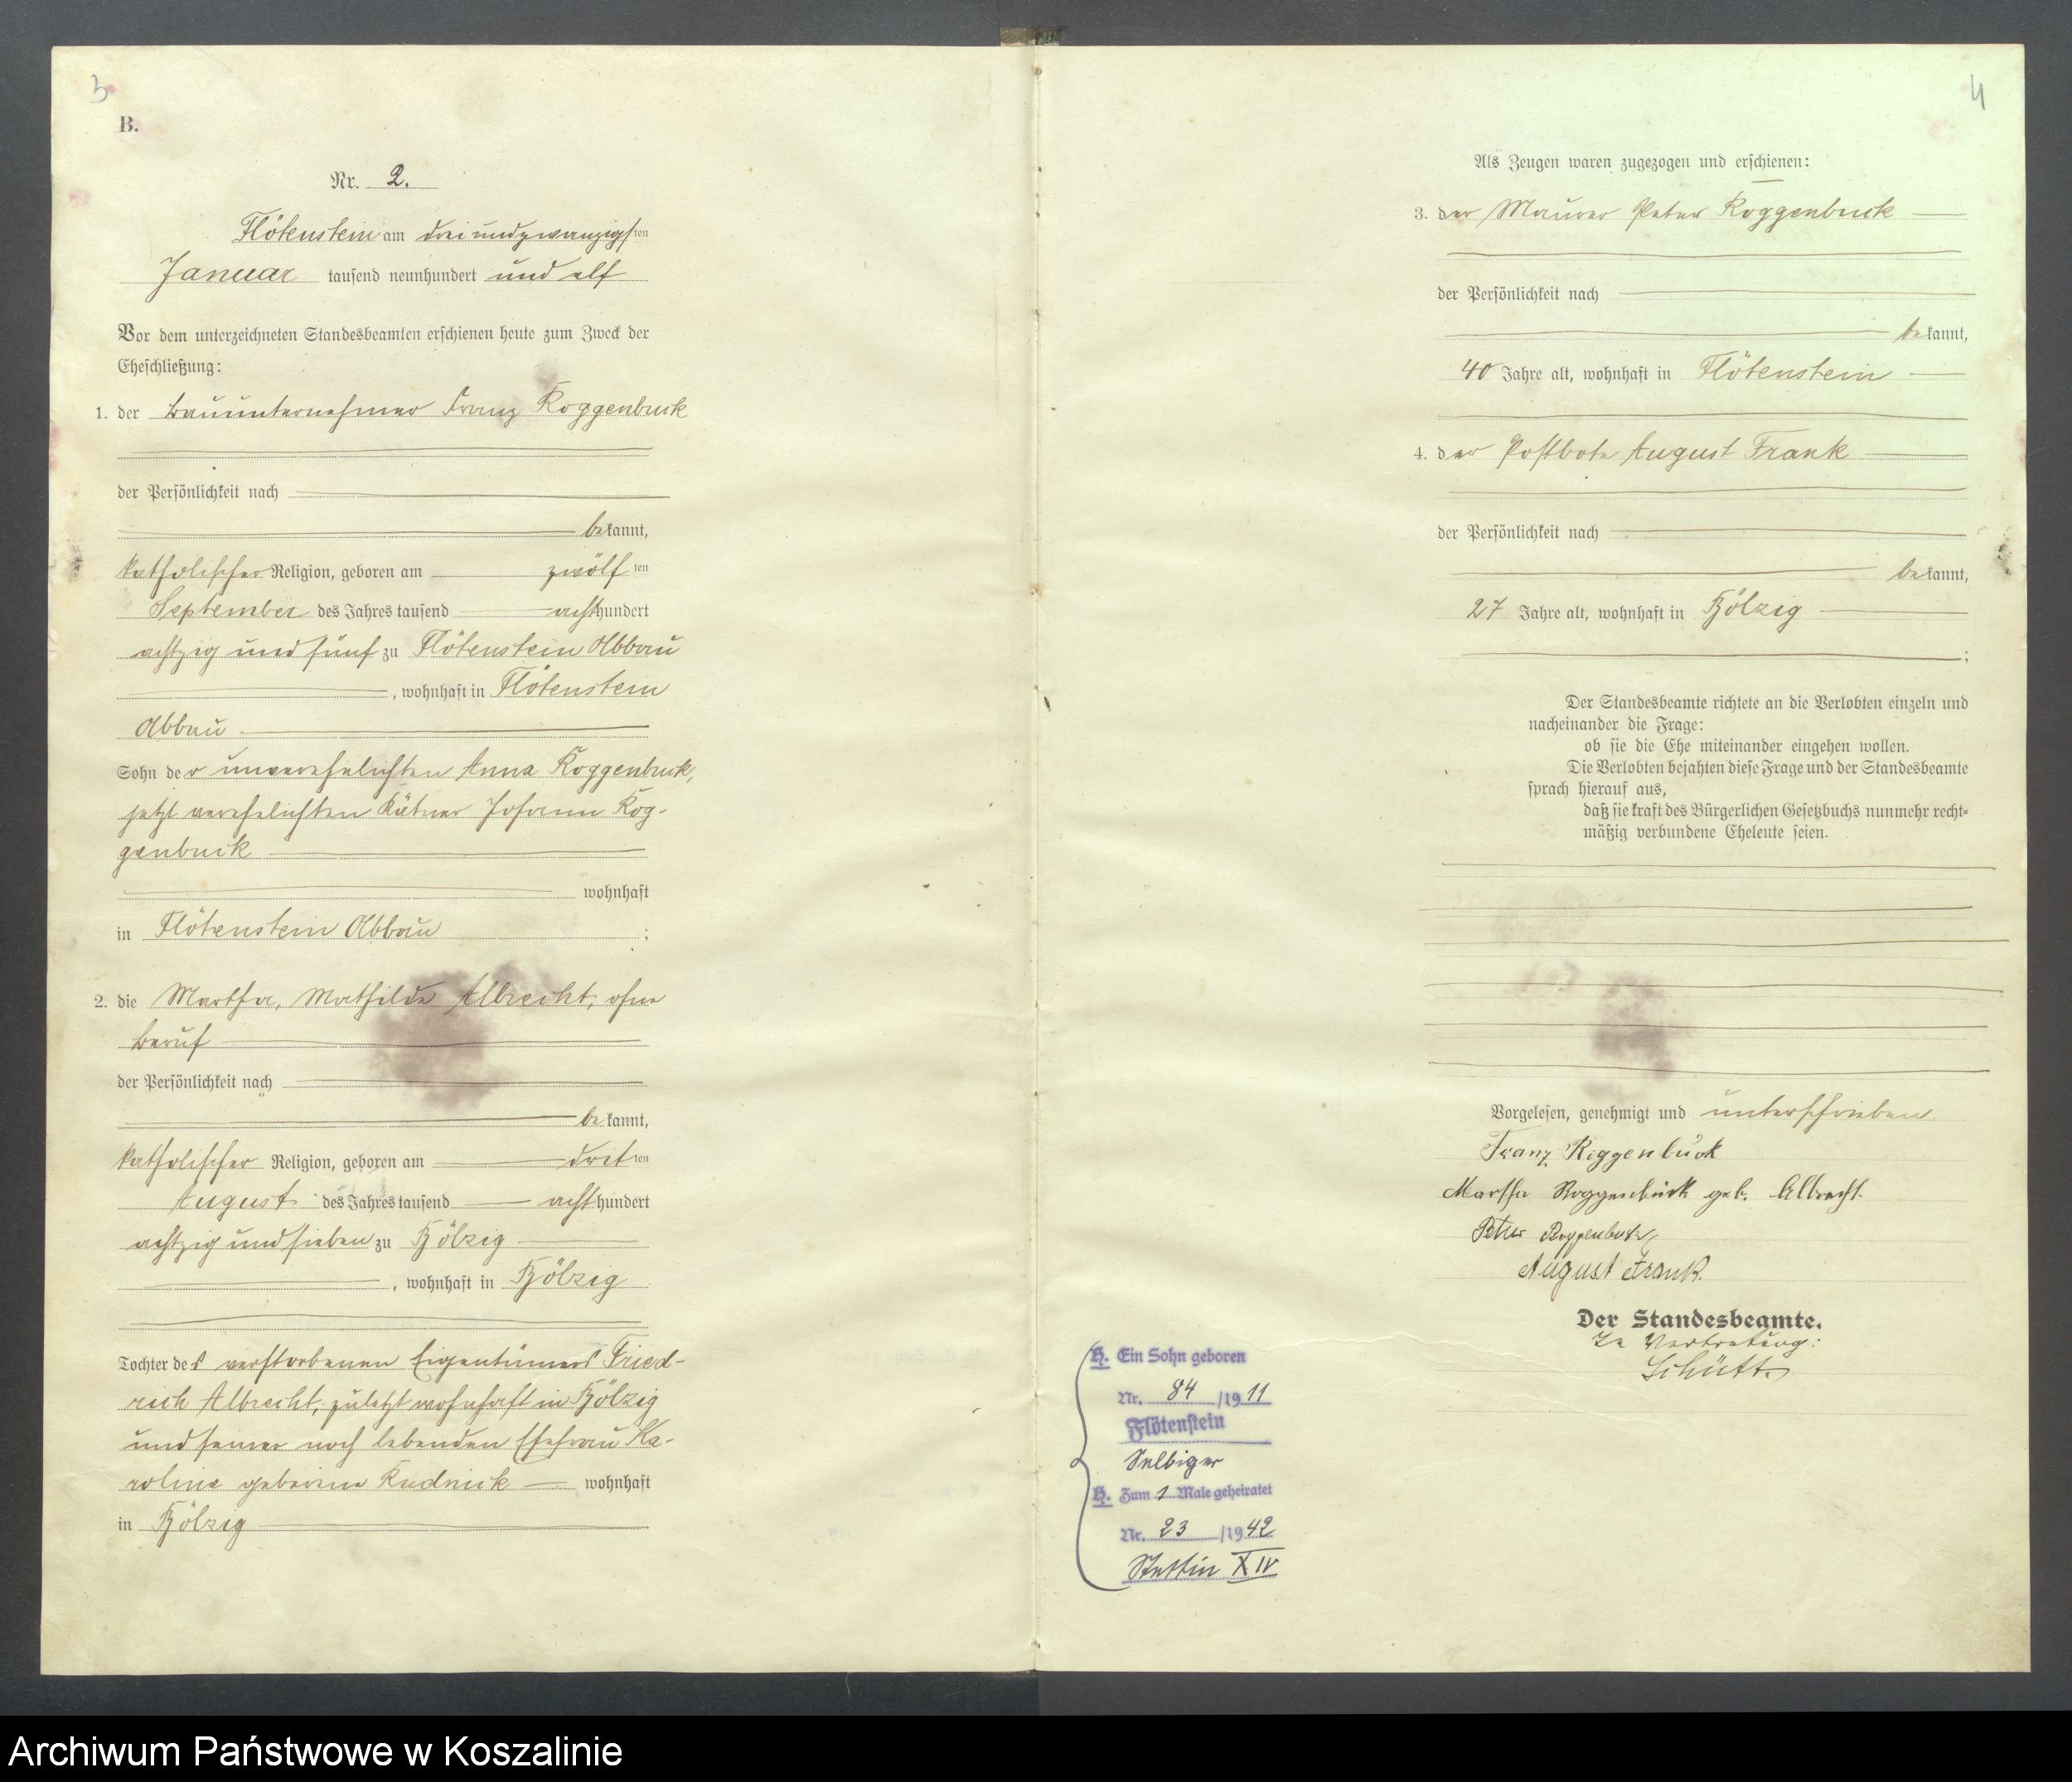 3
B.
Nr. 2.
Flötenstein am dreiundzwanzigsten
Januar tausend neunhundert und elf
Vor dem unterzeichneten Standesbeamten erschienen heute zum Zweck der
Eheschließung:
1. der Bauunternehmer Franz Roggenbuck
der Persönlichkeit nach
bekannt,
katholischer Religion, geboren am zwölften
September des Jahres tausend achthundert
achtzig und fünf zu Flötenstein Abbau
, wohnhaft in Flötenstein
Abbau
Sohn der unverehelichten Anna Roggenbuck,
jetzt verehelichten Kätner Johann Rog-
genbuck
wohnhaft
in Flötenstein Abbau ;
2. die Martha, Mathilde Albrecht, ohne
Beruf
der Persönlichkeit nach
bekannt,
katholischer Religion, geboren am dritten
August des Jahres tausend achthundert
achtzig und sieben zu Kölzig
, wohnhaft in Kölzig
Tochter des verstorbenen Eigentümers Fried-
rich Albrecht, zuletzt wohnhaft in Kölzig
und seiner noch lebenden Ehefrau Ka-
roline geborene Rudnick wohnhaft
in Kölzig
4
Als Zeugen waren zugezogen und erschienen:
3. der Maurer Peter Roggenbuck
der Persönlichkeit nach
bekannt,
40 Jahre alt, wohnhaft in Flötenstein
4. der Postbote August Frank
der Persönlichkeit nach
bekannt,
27 Jahre alt, wohnhaft in Kölzig
;
Der Standesbeamte richtete an die Verlobten einzeln und
nacheinander die Frage:
ob sie die Ehe miteinander eingehen wollen.
Die Verlobten bejahten diese Frage und der Standesbeamte
sprach hierauf aus,
daß sie kraft des Bürgerlichen Gesetzbuchs nunmehr recht-
mäßig verbundene Eheleute seien.
Vorgelesen, genehmigt und unterschrieben
Franz Roggenbuck
Martha Roggenbuck geb. Albrecht.
Peter Roggenbuck
August Frank.
Der Standesbeamte.
In Vertretung:
Schütt.
H. Ein Sohn geboren
Nr. 84 /1911
Flötenstein
Selbiger
H. Zum 1 Male geheiratet
Nr. 23 /1942
Stettin XIV
Archiwum Państwowe w Koszalinie